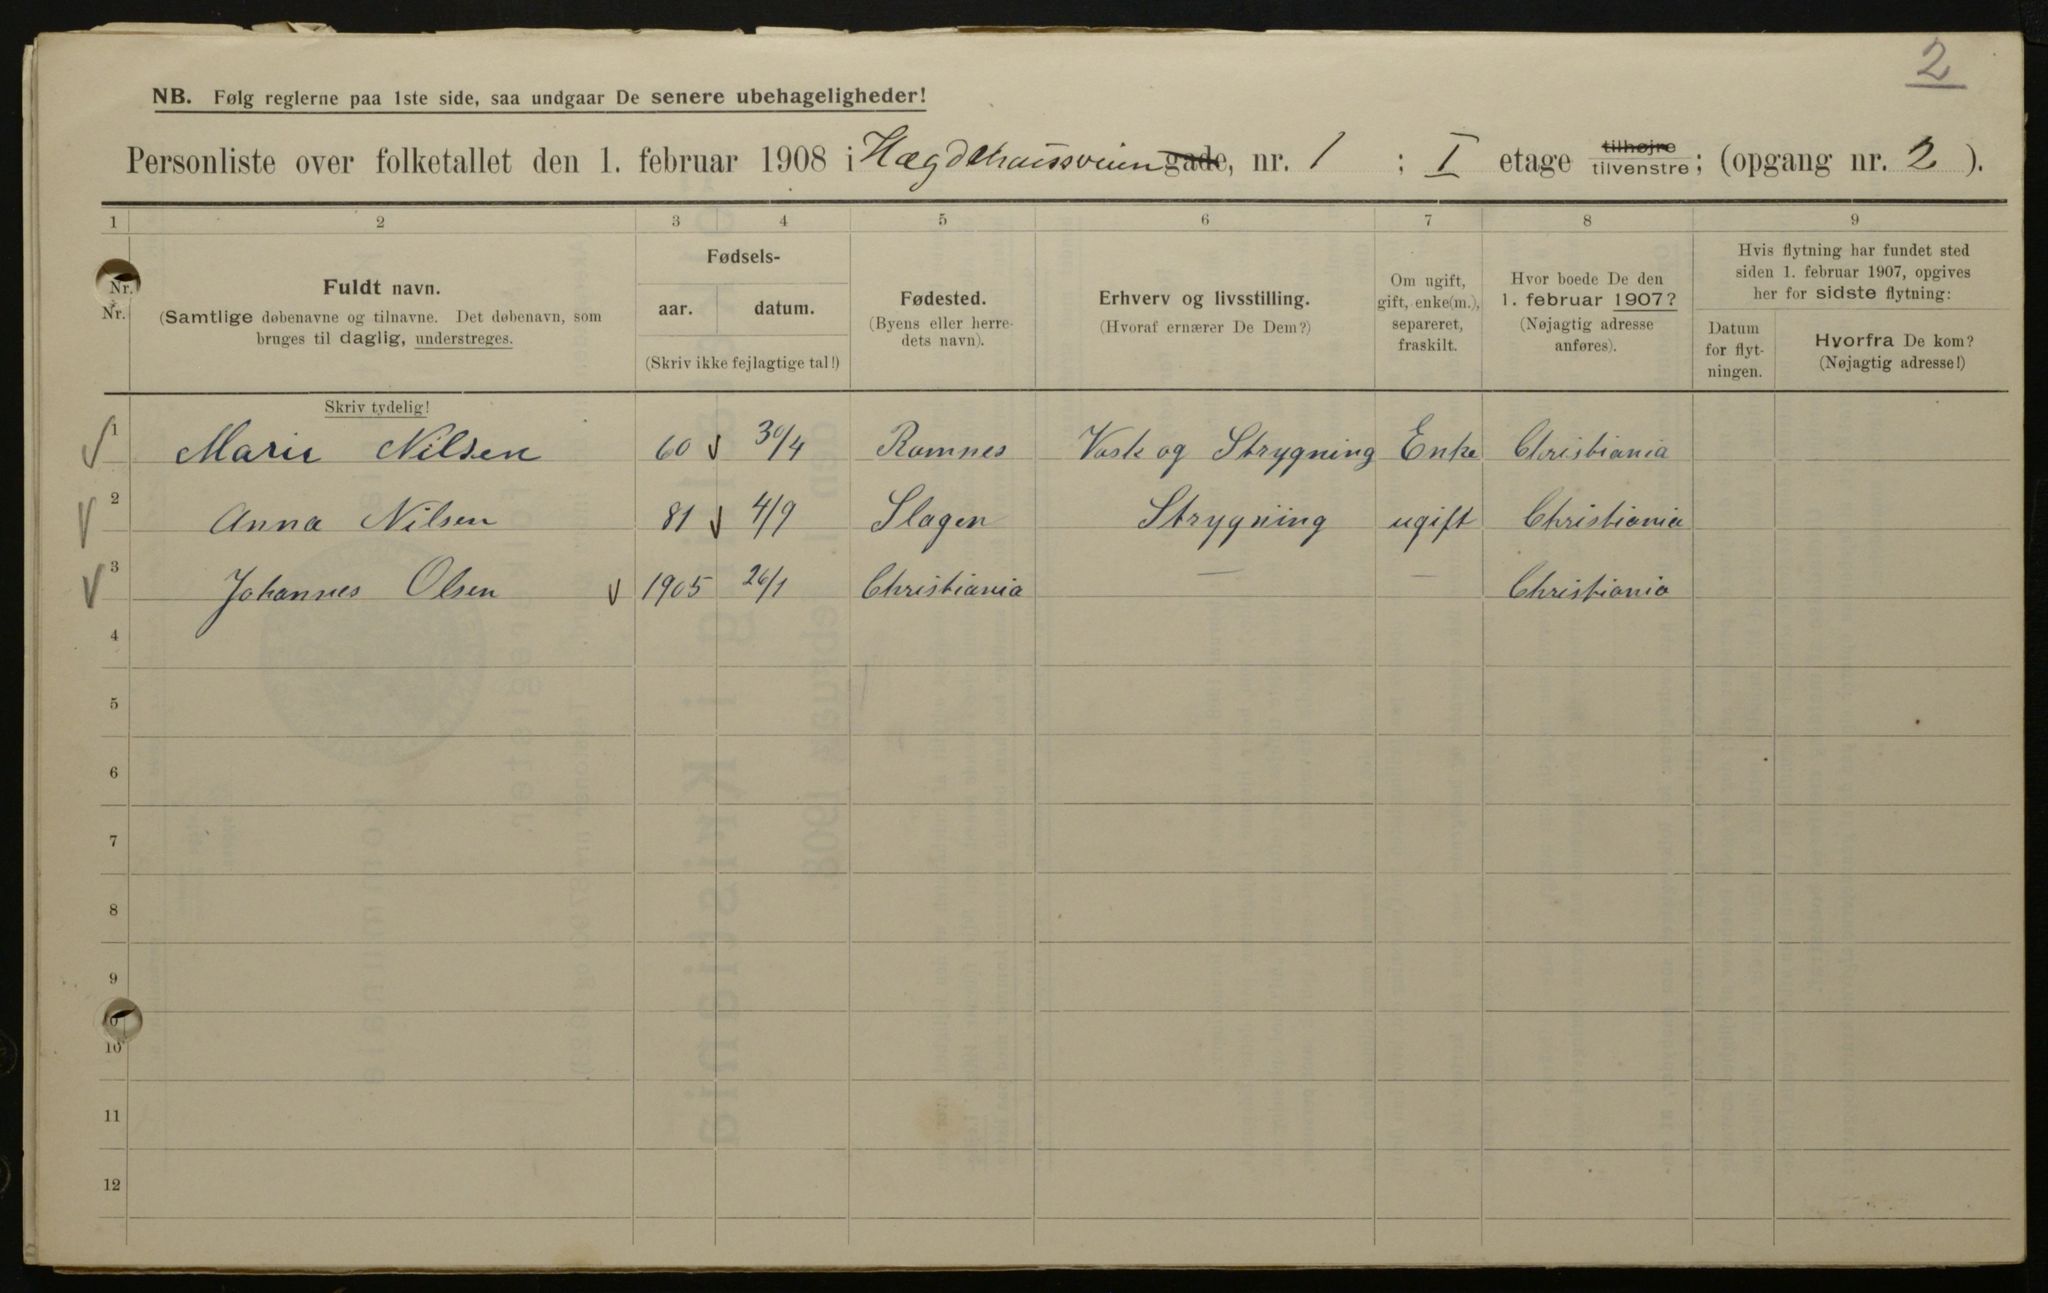 2
NB. Følg reglerne paa 1ste side, saa undgaar De senere ubehageligheder!
Personliste over folketallet den 1. februar 1908 i Hægdehaugsveien gade, nr. 1 ; I etage tilhøjre tilvenstre; (opgang nr. 2 ).
1 2 3 4 5 6 7 8 9
Nr. Nr.
Fuldt navn.
(Samtlige døbenavne og tilnavne. Det døbenavn, som
bruges til daglig, understreges.
Skriv tydelig!
Fødsels-
aar. datum.
(Skriv ikke fejlagtige tal!)
Fødested.
(Byens eller herre-
dets navn).
Erhverv og livsstilling.
(Hvoraf ernærer De Dem?)
Om ugift,
gift, enke(m.),
separeret,
fraskilt.
Hvor boede De den
1. februar 1907?
(Nøjagtig adresse
anføres).
Hvis flytning har fundet sted
siden 1. februar 1907, opgives
her for sidste flytning:
Datum
for flyt-
ningen.
Hvorfra De kom?
(Nøjagtig adresse!)
1 Marie Nilsen 60 30/4 Ramnes Vask og Strygning Enke Christiania
2 Anna Nilsen 81 4/9 Slagen Strygning ugift Christiania
3 Johannes Olsen 1905 26/1 Christiania — — Christiania
4
5
6
7
8
9
10
10
11
12